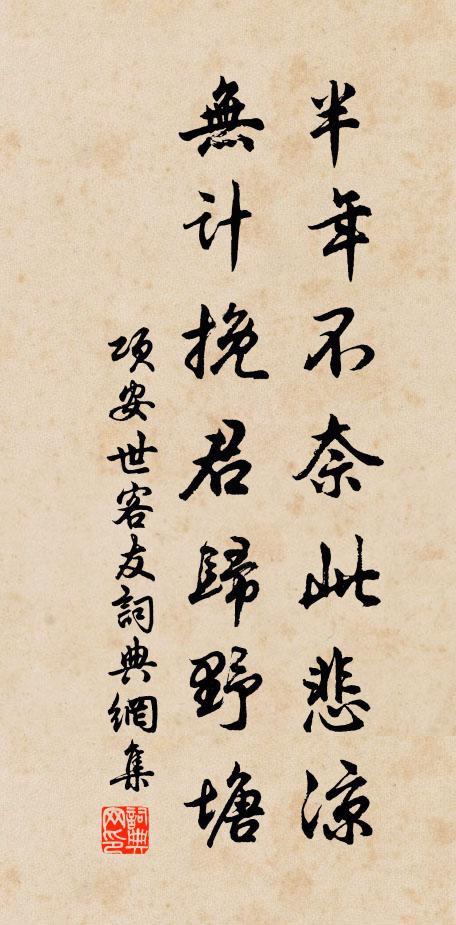 半年不奈此悲涼
無計挽君歸野塘
項安世客友詞典網集
詞典网印